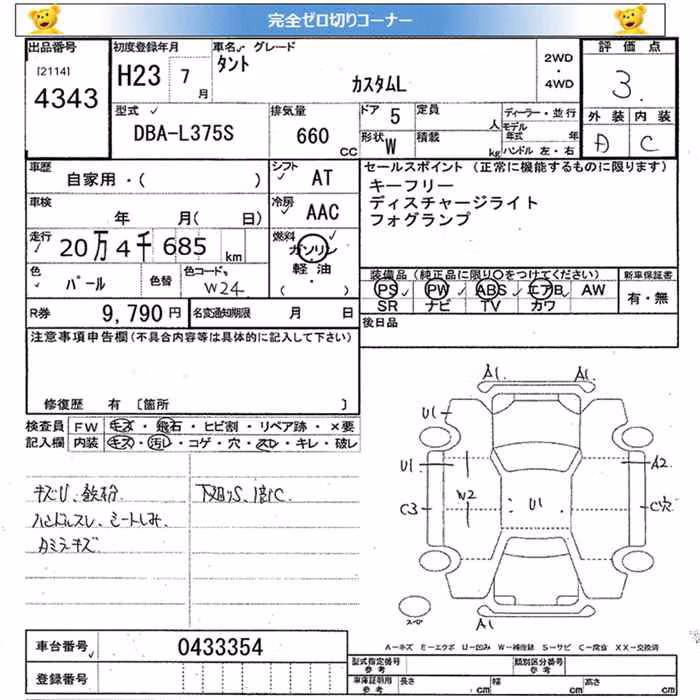 完全ゼロ切りコーナー
出品番号
[2114]
4343
初度登録年月
H23 7 月
車名 グレード
タント
カスタムL
2WD
・
4WD
評価点
3.
外装 内装
A C
型式
DBA-L375S
排気量
660 cc
ドア 5
形状 W
定員 人
積載 kg
ディーラー・並行
モデル
年式 年
ハンドル 左・右
車歴
自家用・( )
シフト AT
セールスポイント (正常に機能するものに限ります)
キーフリー
ディスチャージライト
フォグランプ
車検
年 月( 日)
冷房 AAC
走行
20万4千685 km
燃料
ガソリン
軽油
( ・ )
色
パール
色替
色コード
W24
装備品 (純正品に限り○をつけてください)
PS PW ABS エアB AW
SR ナビ TV カワ
新車保証書
有・無
R券 9,790 円
名変通知期限 月 日
後日品
注意事項申告欄(不具合内容等は具体的に記入して下さい)
修復歴 有 〔箇所 〕
検査員
記入欄
FW キズ・飛石・ヒビ割・リペア跡・×要
内装 キズ・汚レ・コゲ・穴・スレ・キレ・破レ
キズU、鉄粉
ハンドルスレ、シートしみ
下回りS、
A1. A1.
U1
U1 A2
W2 U1
C3 C穴
A1
スペア
A-キズ E-エクボ U-凹み W-補修跡 S-サビ C-腐食 XX-交換済
車台番号 0433354
登録番号
型式指定番号
参考
類別区分番号
参考
車庫証明用
参考
長さ cm 幅 cm 高さ cm